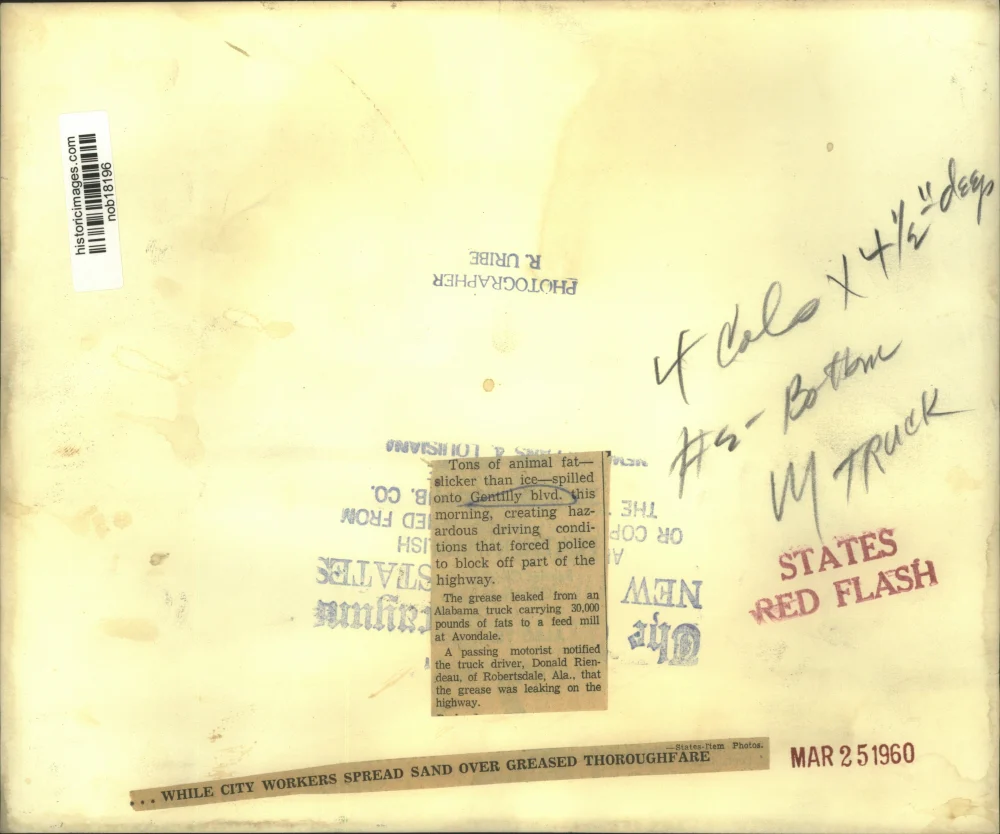 historicimages.com
nob18196
PHOTOGRAPHER
R. URIBE
4 Cols X 4 1/2" deep
Bottom
TRUCK
& LOUISIANA
THE
B. CO.
OR COP
IED FROM
ISH
NEW
STATES
The
Tons of animal fat—
slicker than ice—spilled
onto Gentilly blvd. this
morning, creating haz-
ardous driving condi-
tions that forced police
to block off part of the
highway.
The grease leaked from an
Alabama truck carrying 30,000
pounds of fats to a feed mill
at Avondale.
A passing motorist notified
the truck driver, Donald Rien-
deau, of Robertsdale, Ala., that
the grease was leaking on the
highway.
STATES
RED FLASH
MAR 25 1960
—States-Item Photos.
... WHILE CITY WORKERS SPREAD SAND OVER GREASED THOROUGHFARE